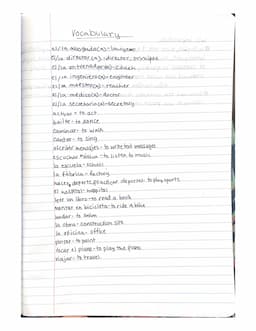 Vocabulary
el/la abogado(a)- lawyer
el/la director(a)- director, principal
el/la entrenador(a)- coach
el/la ingeniero(a)- engineer
el/la maestro(a)- teacher
el/la médico(a)- doctor
el/la secretario(a)- secretary
actuar- to act
bailar- to dance
caminar- to walk
cantar- to sing
escribir mensajes- to write text messages
escuchar música- to listen to music
la escuela- school
la fábrica- factory
hacer deporte, practicar deportes- to play sports
el hospital- hospital
leer un libro- to read a book
montar en bicicleta- to ride a bike
nadar- to swim
la obra- construction site
la oficina- office
pintar- to paint
tocar el piano- to play the piano
viajar- to travel